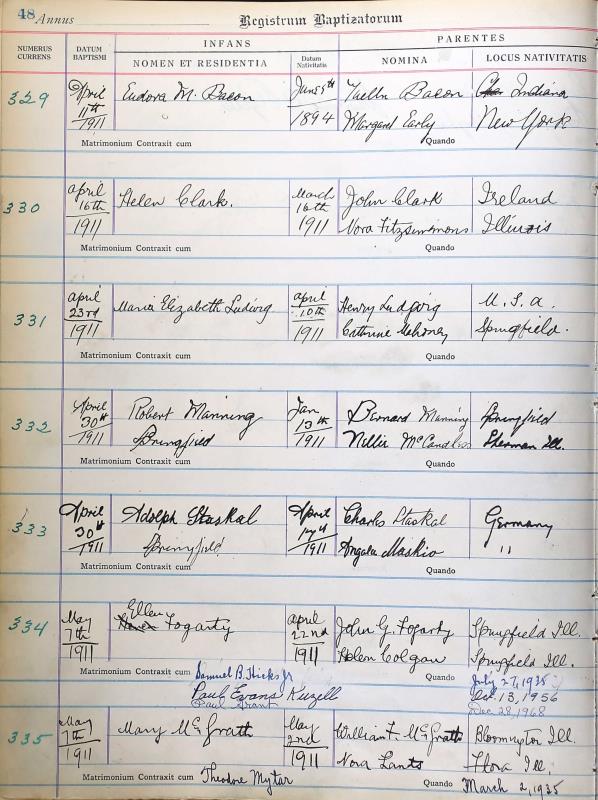 48 Annus Registrum Baptizatorum
NUMERUS CURRENS DATUM BAPTISMI INFANS PARENTES
NOMEN ET RESIDENTIA Datum Nativitatis NOMINA LOCUS NATIVITATIS
329 April 11th 1911 Eudora M. Bacon June 5th 1894 Bacon Indiana
Margaret Early New York
Matrimonium Contraxit cum Quando
330 April 16th 1911 Helen Clark. March 16th 1911 John Clark Ireland
Nora Fitzsimmons Illinois
Matrimonium Contraxit cum Quando
331 April 23rd 1911 Maria Elizabeth Ludwig April 10th 1911 Henry Ludwig U.S.A.
Catherine Mahoney Springfield.
Matrimonium Contraxit cum Quando
332 April 30th 1911 Robert Manning Jan 13th 1911 Barnard Manning Springfield
Springfield Nellie McCandless Sherman Ill.
Matrimonium Contraxit cum Quando
333 April 30th 1911 Adolph Staskal April 1911 Charles Staskal Germany
Springfield Angela Maskio "
Matrimonium Contraxit cum Quando
334 May 7th 1911 Ellen Fogarty April 22nd 1911 John G. Fogarty Springfield Ill.
Helen Colgan Springfield Ill.
Matrimonium Contraxit cum Samuel B. Hicks Jr July 27, 1935
Paul Evans Kuzell Dec 13, 1956
Paul Grant Dec 28, 1968
335 May 7th 1911 Mary McGrath May 2nd 1911 William F. McGrath Bloomington Ill.
Nora Lants Flora Ill.
Matrimonium Contraxit cum Theodore Mytar Quando March 2, 1935